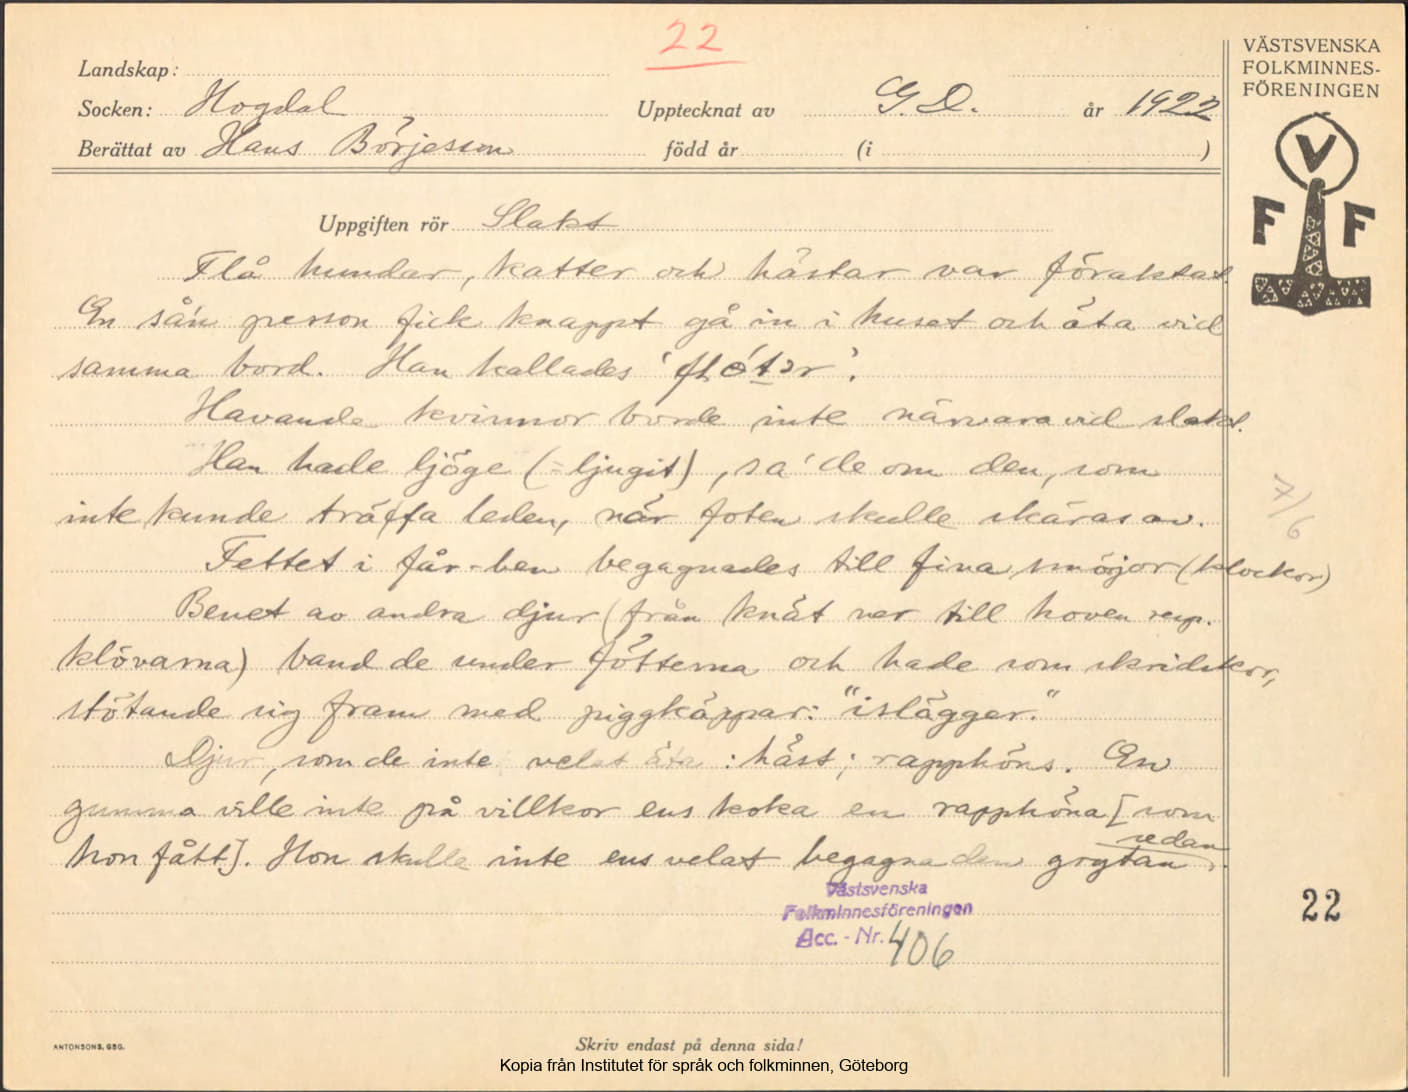 22
VÄSTSVENSKA
FOLKMINNES-
FÖRENINGEN
Landskap:
Socken: Hogdal Upptecknat av G. D. år 1922
Berättat av Hans Börjesson född år (i )
V
F F
Uppgiften rör Slakt
Flå hundar, katter och hästar var föraktat.
En sån person fick knappt gå in i huset och äta vid
samma bord. Han kallades
Havande kvinnor borde inte närvara vid slakt.
Han hade ljöge (= ljugit), sa' de om den, som
inte kunde träffa leden, när foten skulle skäras av.
Fettet i får-ben begagnades till fina smöjor (klockor)
Benet av andra djur (från knät ner till hoven resp.
klövarna) band de under fötterna och hade som skridskor,
stötande sig fram med piggkäppar: "islägger."
Djur, som de inte velat äta: häst; rapphöns. En
gumma ville inte på villkor ens koka en rapphöna [som
hon fått]. Hon skulle inte ens velat begagna den grytan sedan.
Västsvenska
Folkminnesföreningen
Acc. - Nr. 406
7/6
22
ANTONSONS, GBG.
Skriv endast på denna sida!
Kopia från Institutet för språk och folkminnen, Göteborg